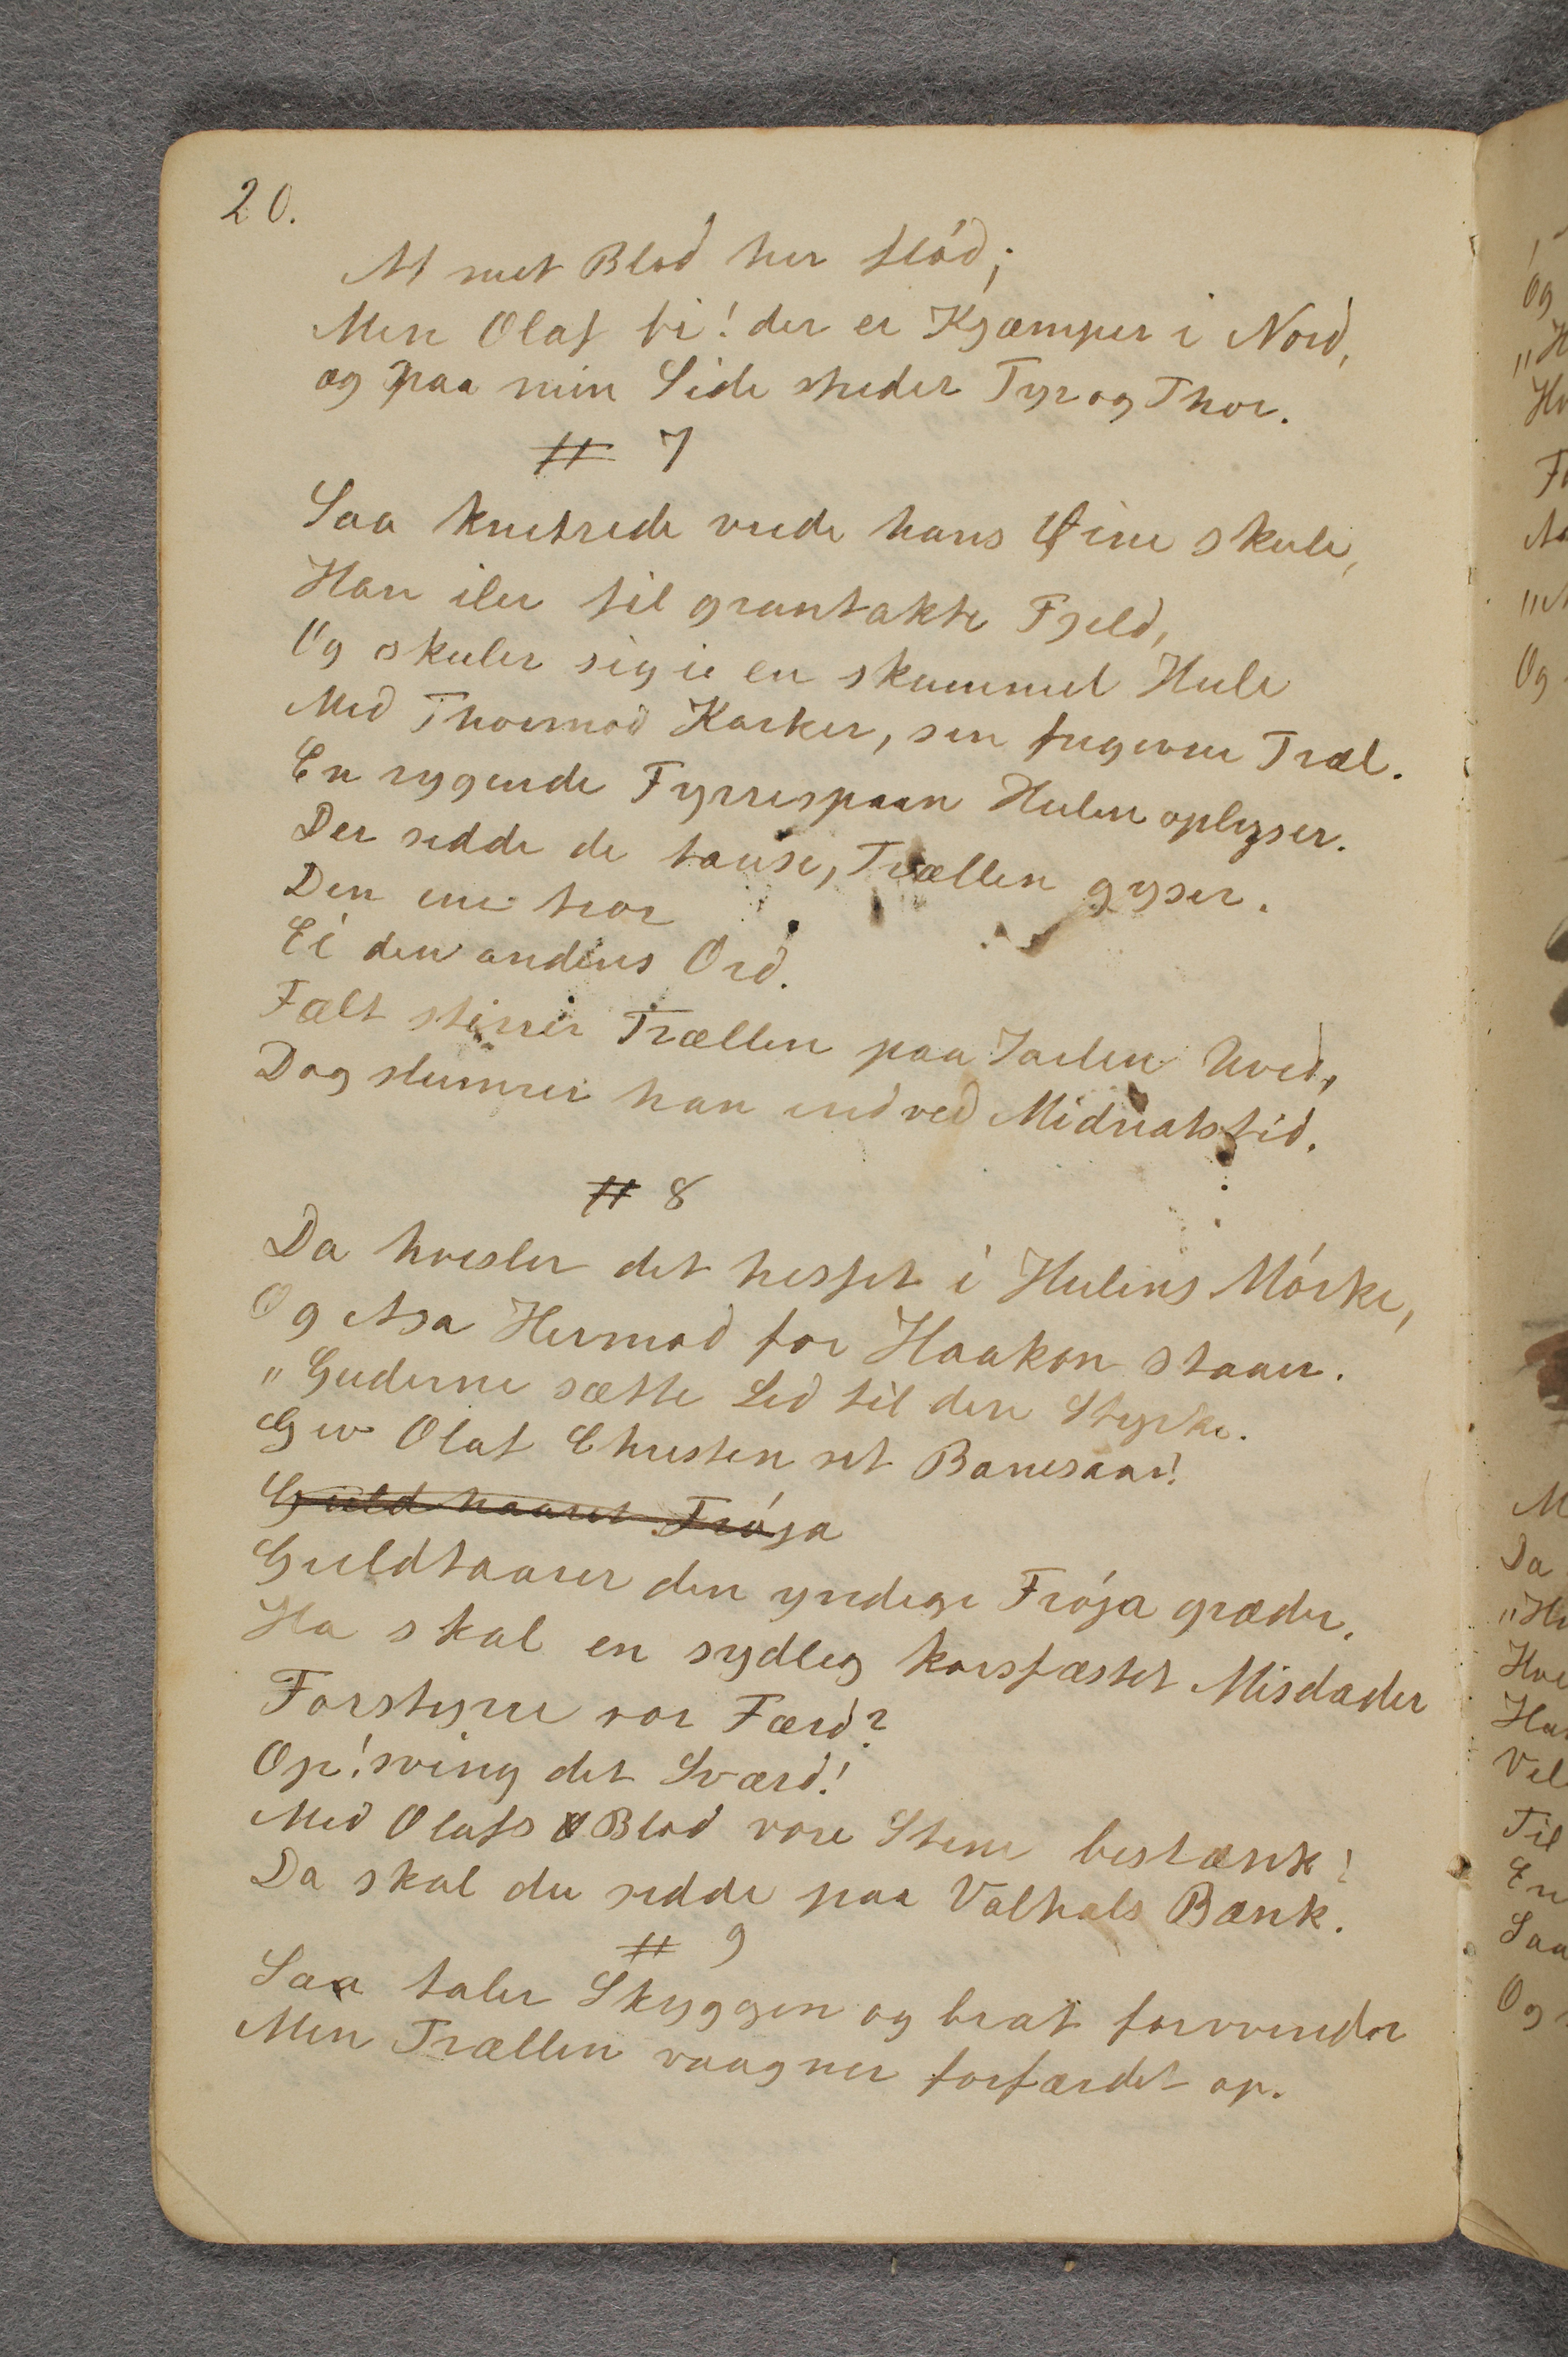 20.
At met Blod her flód;
Men Olaf bi! der er Kjæmper i Nord,
og paa min Side sheder Tyr og Thor.
# 7
Saa knetrede vrede hans Øine skule,
Han iler til grantakte Fjeld,
Og skuler sig ie en skummel Hule
Med Thormod Karker, sin Træl.
En rygende Fyrrespaan Hulen oplyser.
Der sidde de tause, Trællen gyser.
Den ene tror
Ei den andens Ord.
Fælt stirrer Trællen paa Jarlen hved,
Dog slumrer han ind ved Midnatstid.
# 8
Da hvisler det hesfet i Hulens Mórke,
Og Asa Hermod for Haakon staaer.
"Guderne sætte Lid til din Styrke.
Giv Olaf Christen sit Banesaar!
Guldhaaret Frója
Guldtaarer den yndige Frója græder.
Ha skal en sydlig korsfæstet Misdæder
Forstyrre vor Færd?
Op! sving dit Sværd!
Med Olafs Blod vore Stene bestænk!
Da skal du sidde paa Valhals Bænk.
# 9
Saa taler Skyggen og brat forvinder
Men Trællen vaagner forfærdet op.